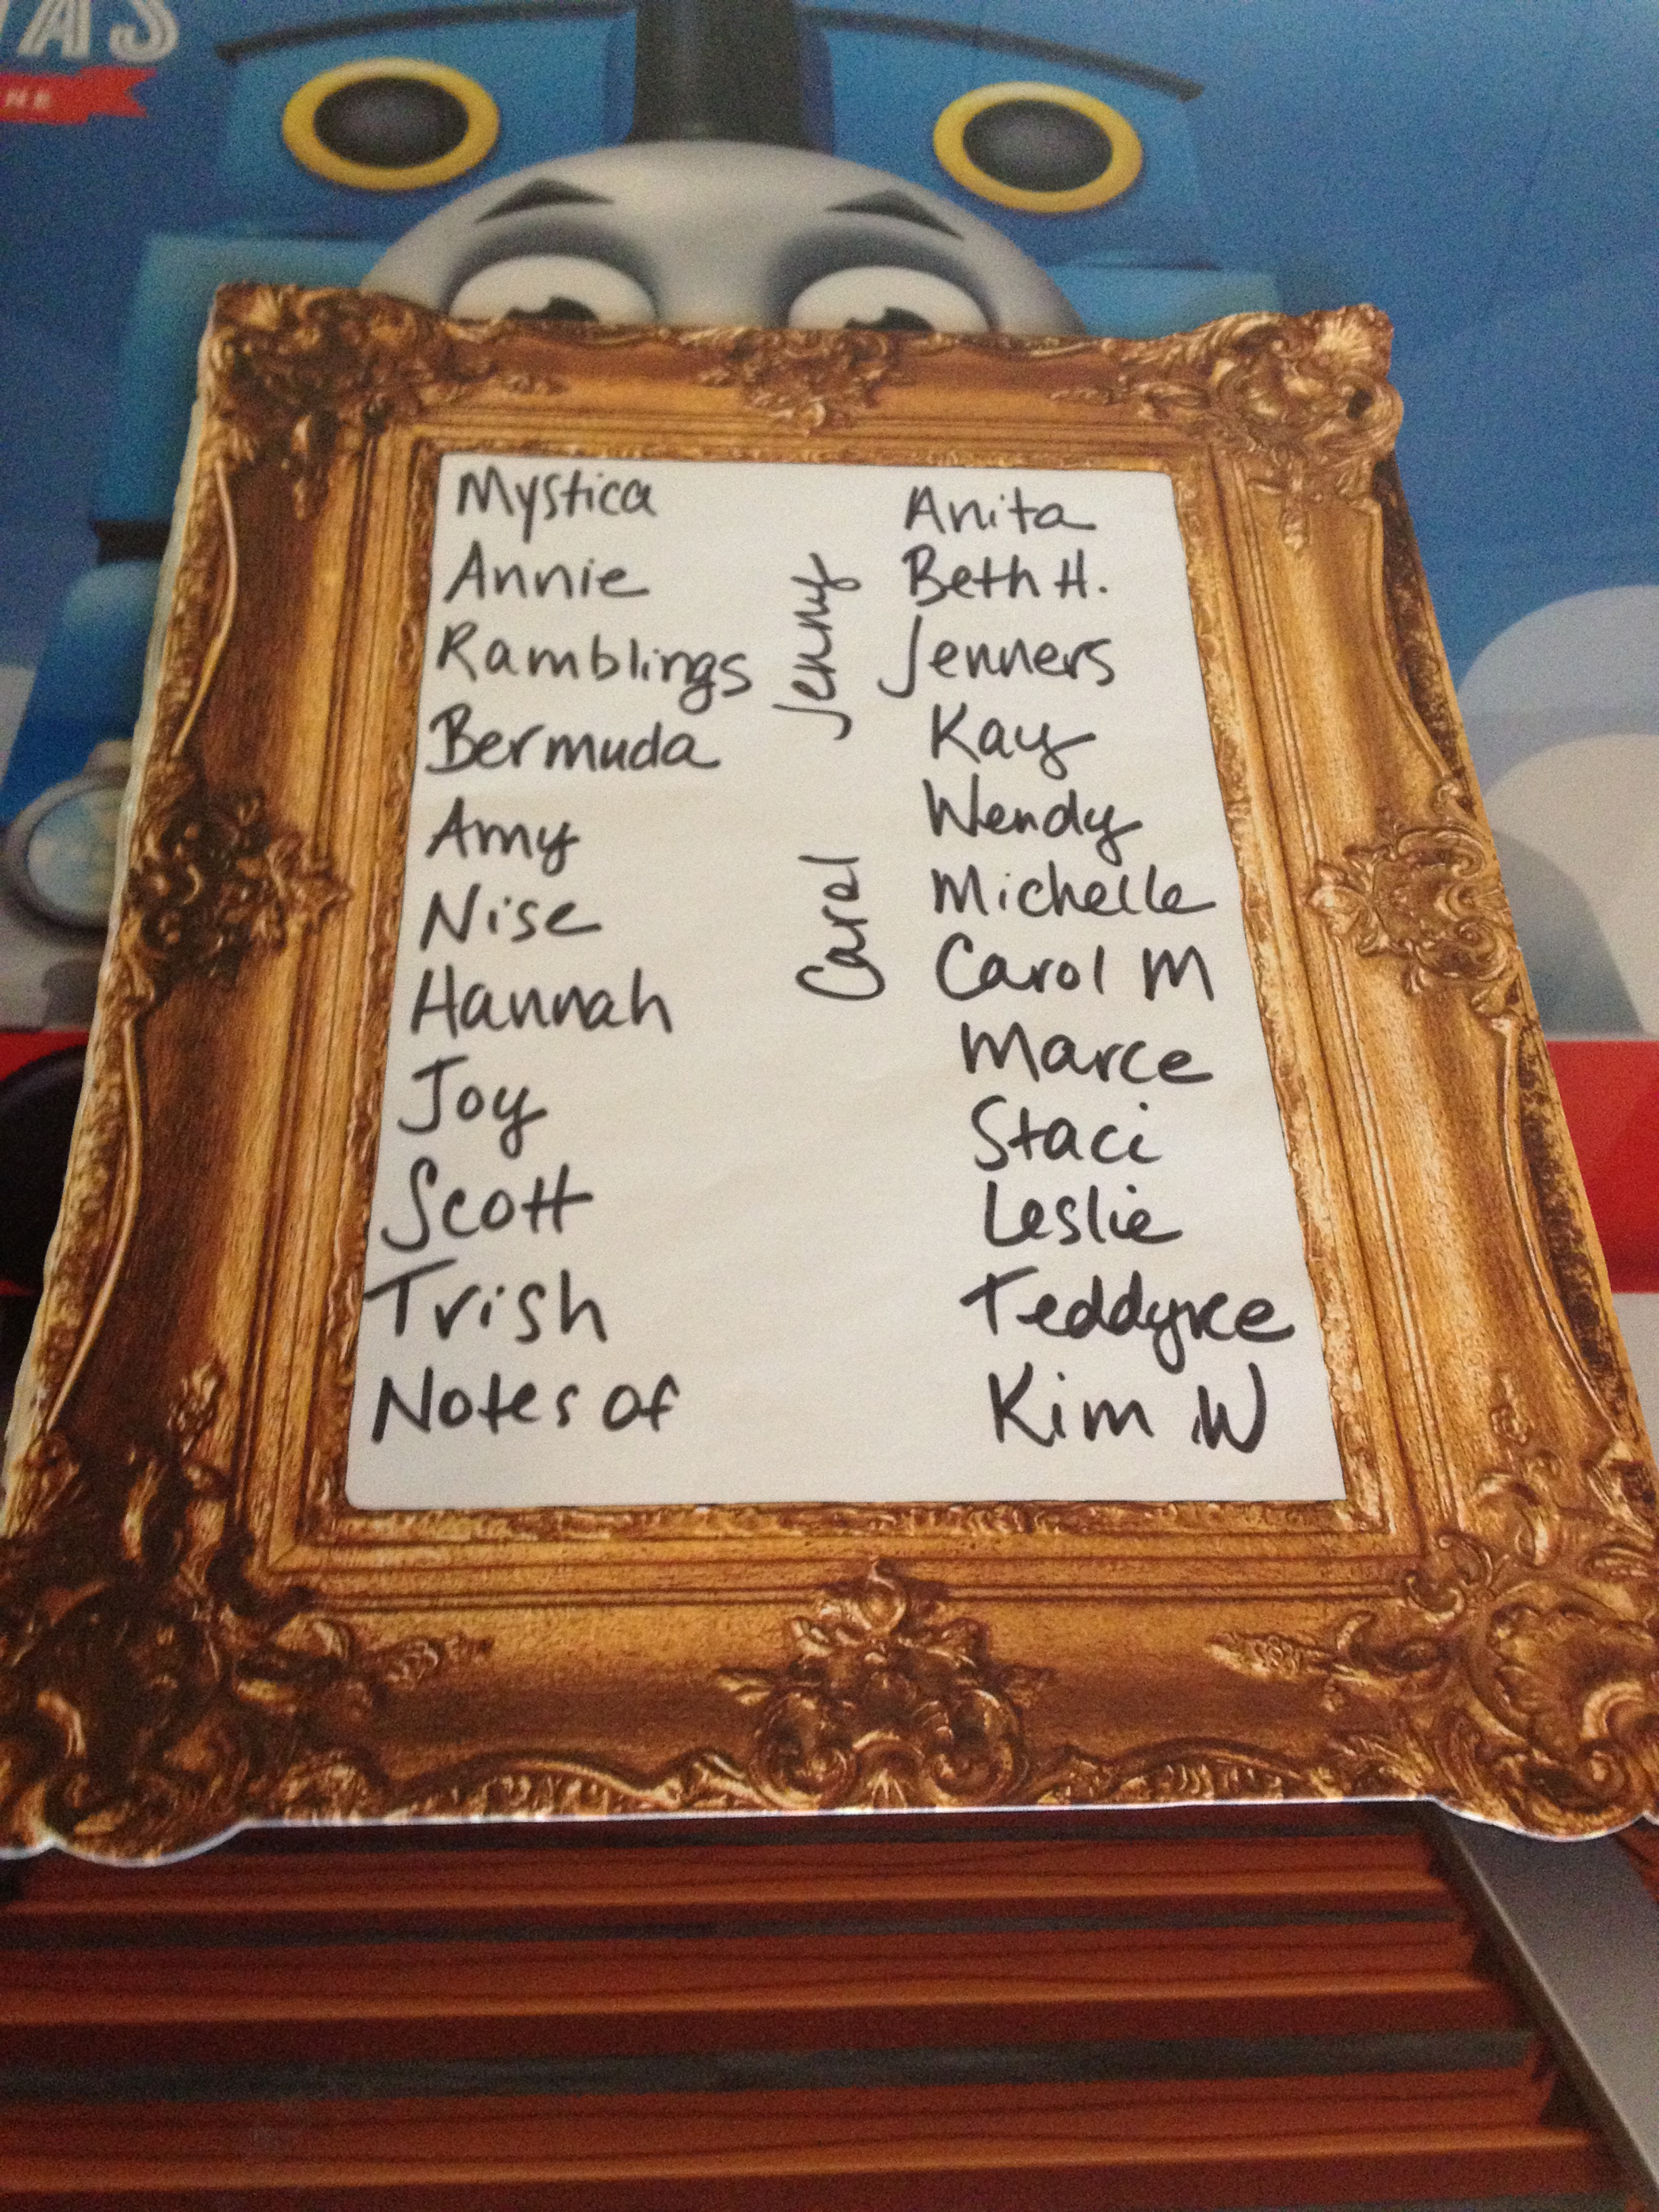 Mystica
Annie
Ramblings
Bermuda
Amy
Nise
Hannah
Joy
Scott
Trish
Notes of
Jenny
Carol
Anita
Beth H.
Jenners
Kay
Wendy
Michelle
Carol M
Marce
Staci
Leslie
Teddyree
Kim W